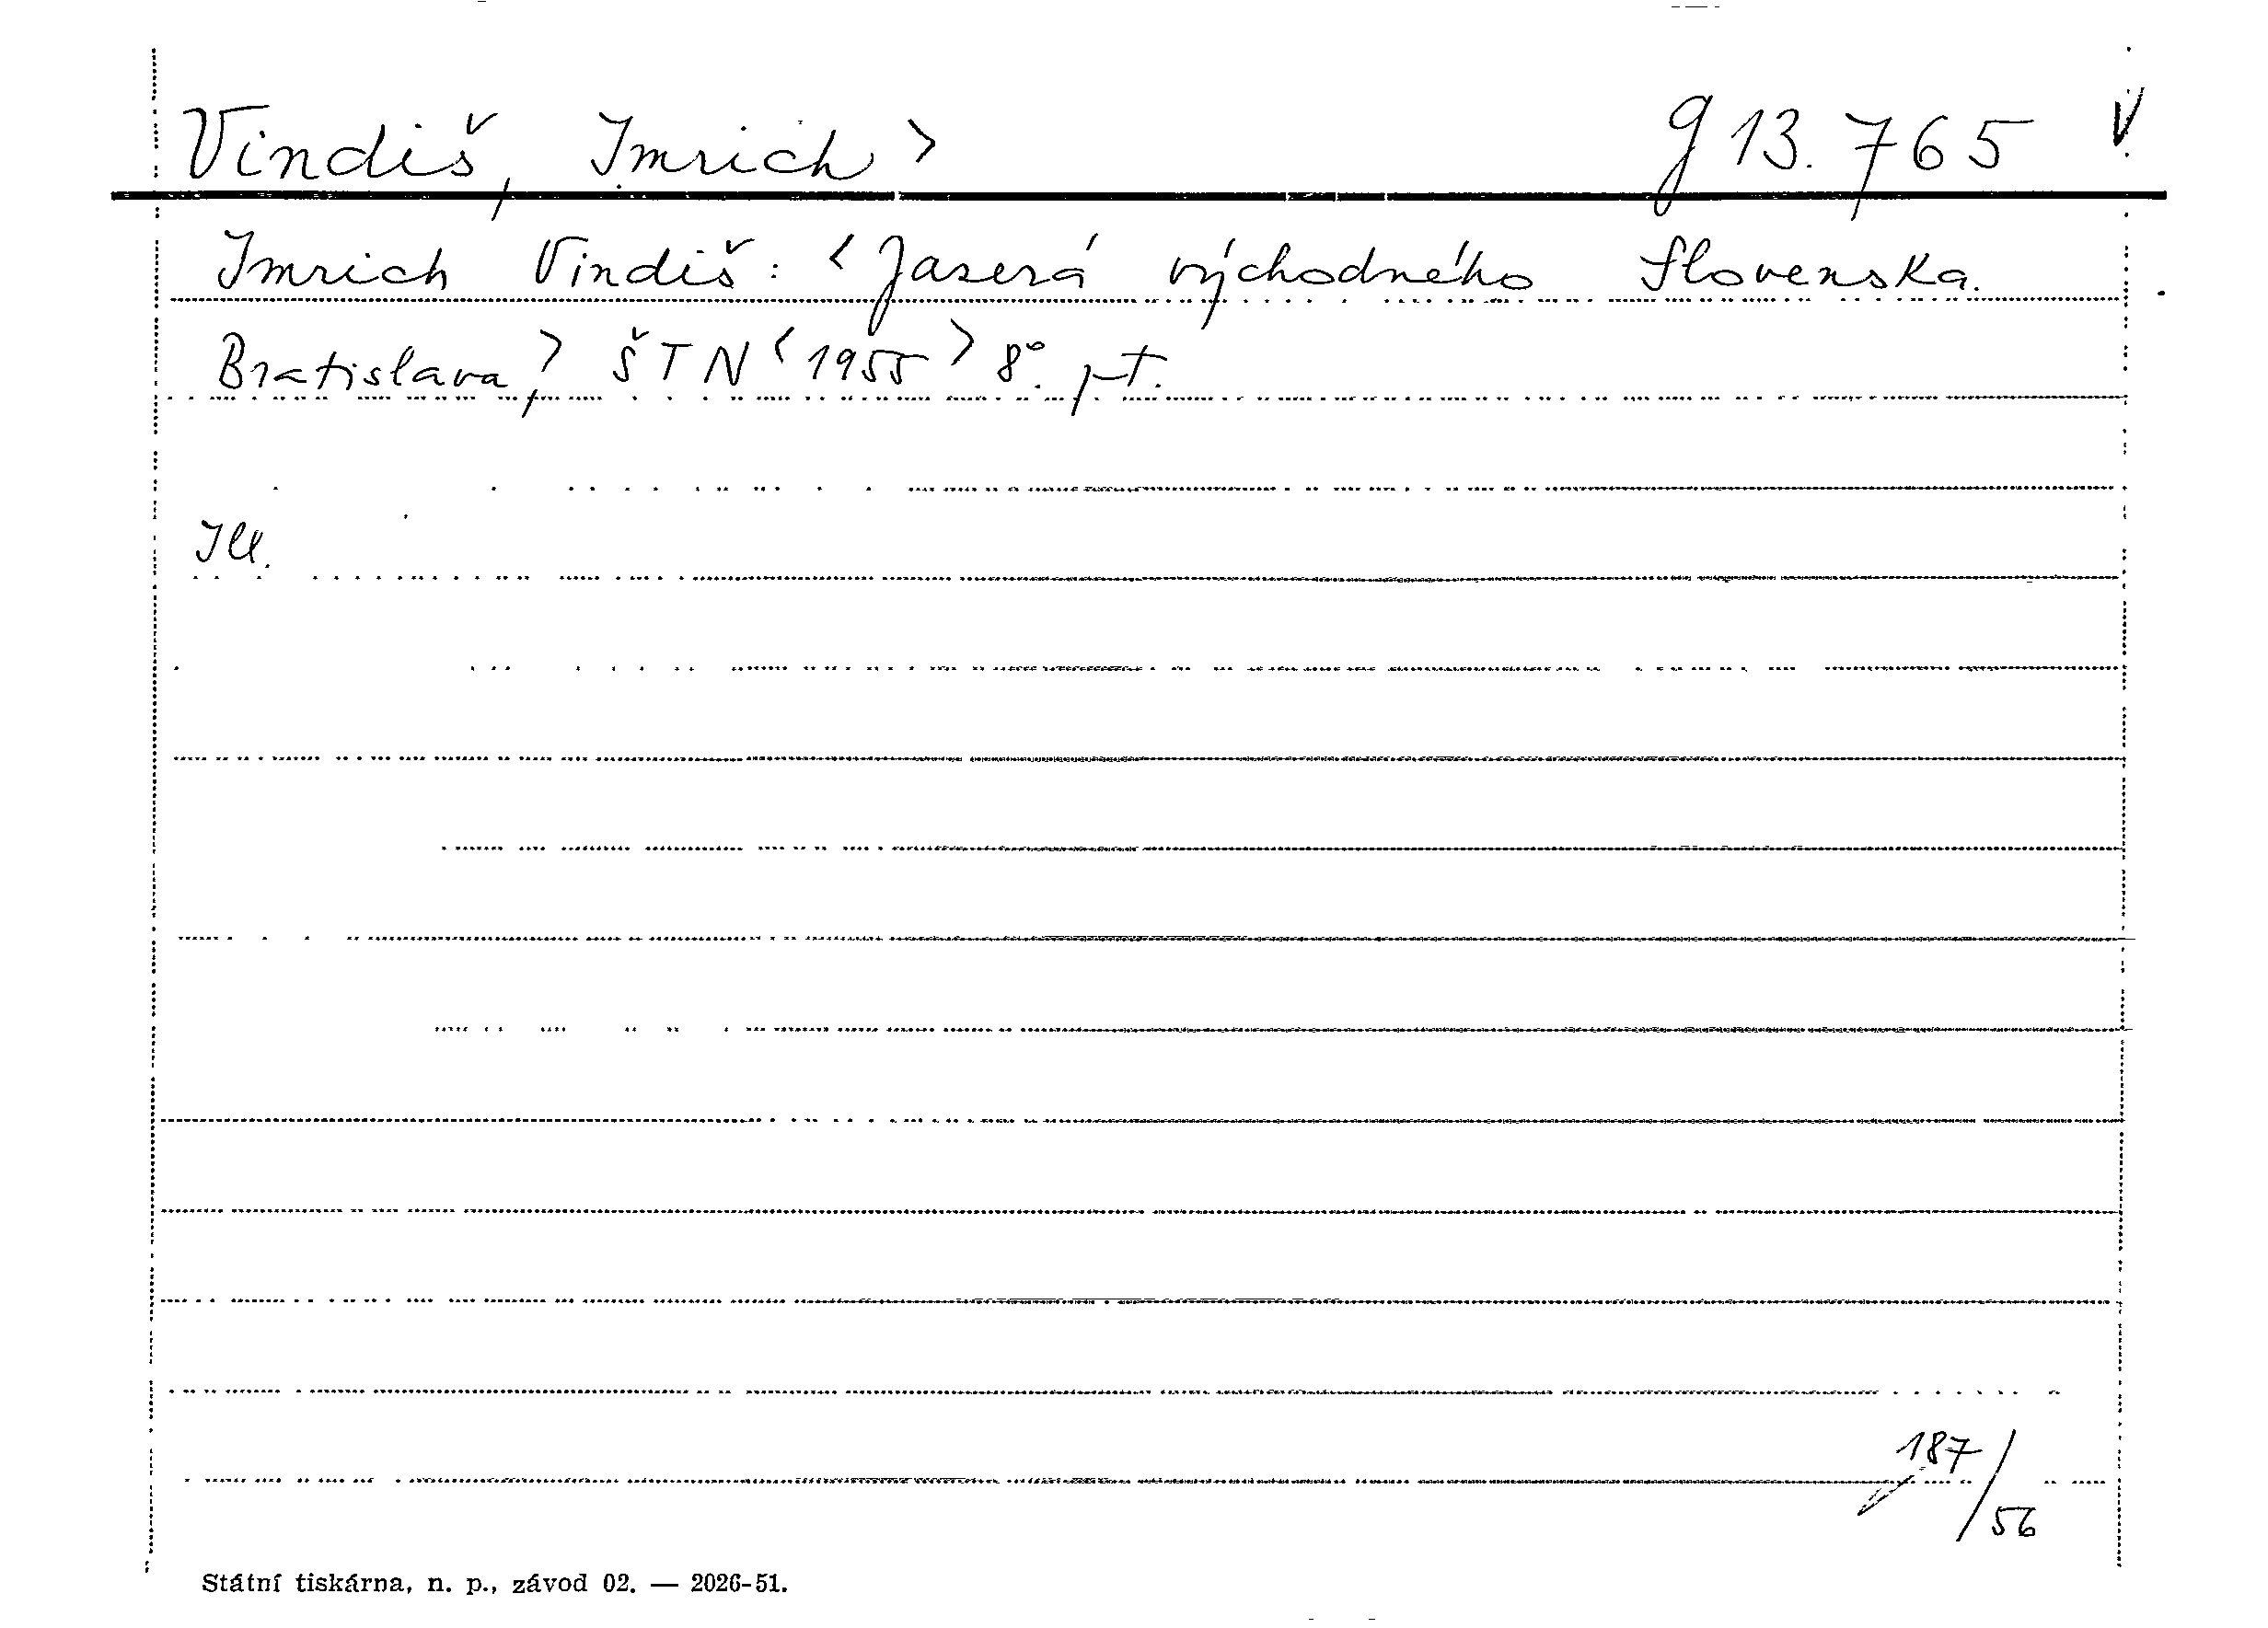 Vindiš, Imrich > g 13.765 V
Imrich Vindiš: < Jaserá východného Slovenska.
Bratislava, > ŠTN < 1955 > 8°. pt.
Ill.
187/56
Státní tiskárna, n. p., závod 02. — 2026-51.